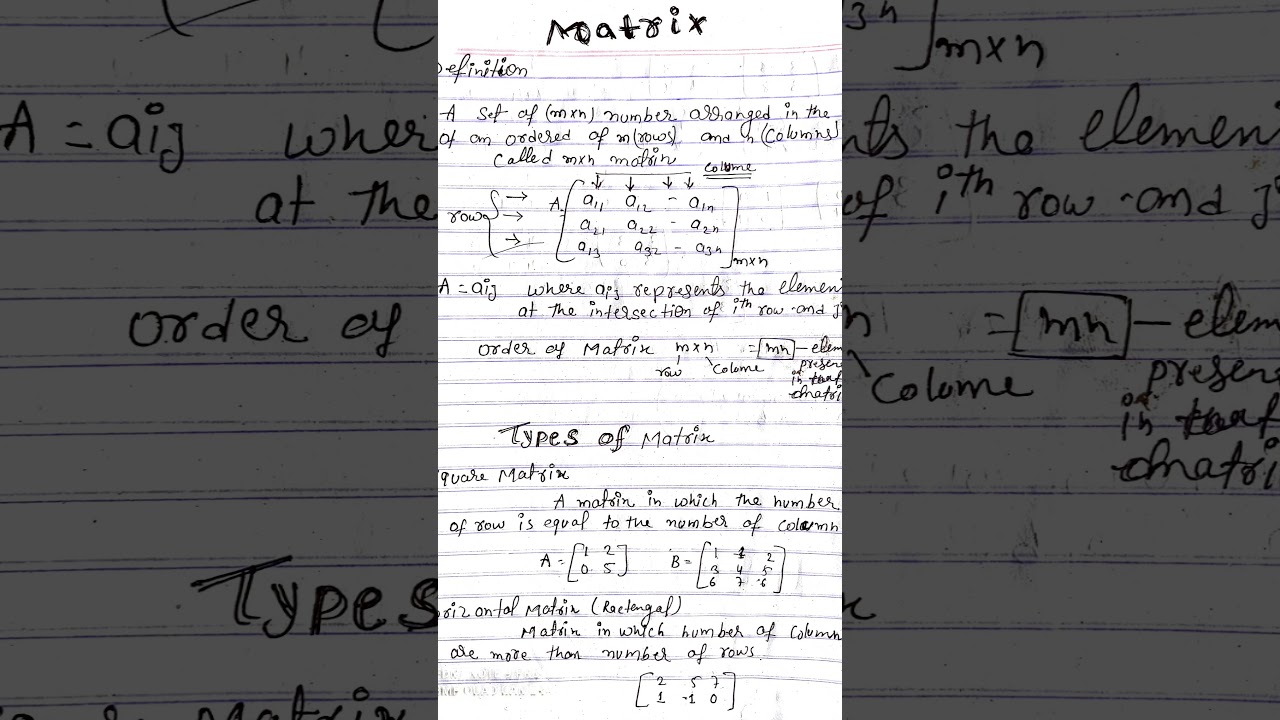 Matrix
Definition
A set of (mxn) number arranged in the
of an ordered of m(rows) and n (columns)
called mxn matrix
colume
row A. a11 a12 - a1n
a21 a22 - a2n
a13 a32 - a3n
mxn
A = aij where aij represents the elemen
at the intersection of ith row and j
order of Matrix mxn = mn - elem
row colume presen
in
matri
Types of Matrix
quare Matrix
A matrix in which the number
of row is equal to the number of column
A = [1 2 B = [1 2 2
0 5] 3 4 5
6 7 6]
orizontal Matrix (Rectengal)
Matrix in which number of column
are more than number of rows.
[2 5 7
1 -1 0]
3n
mxn
A = aij wher
nts the elemen
at the
of ith row and j
order of
= mn - elem
Colome
presen
in
matri
Types